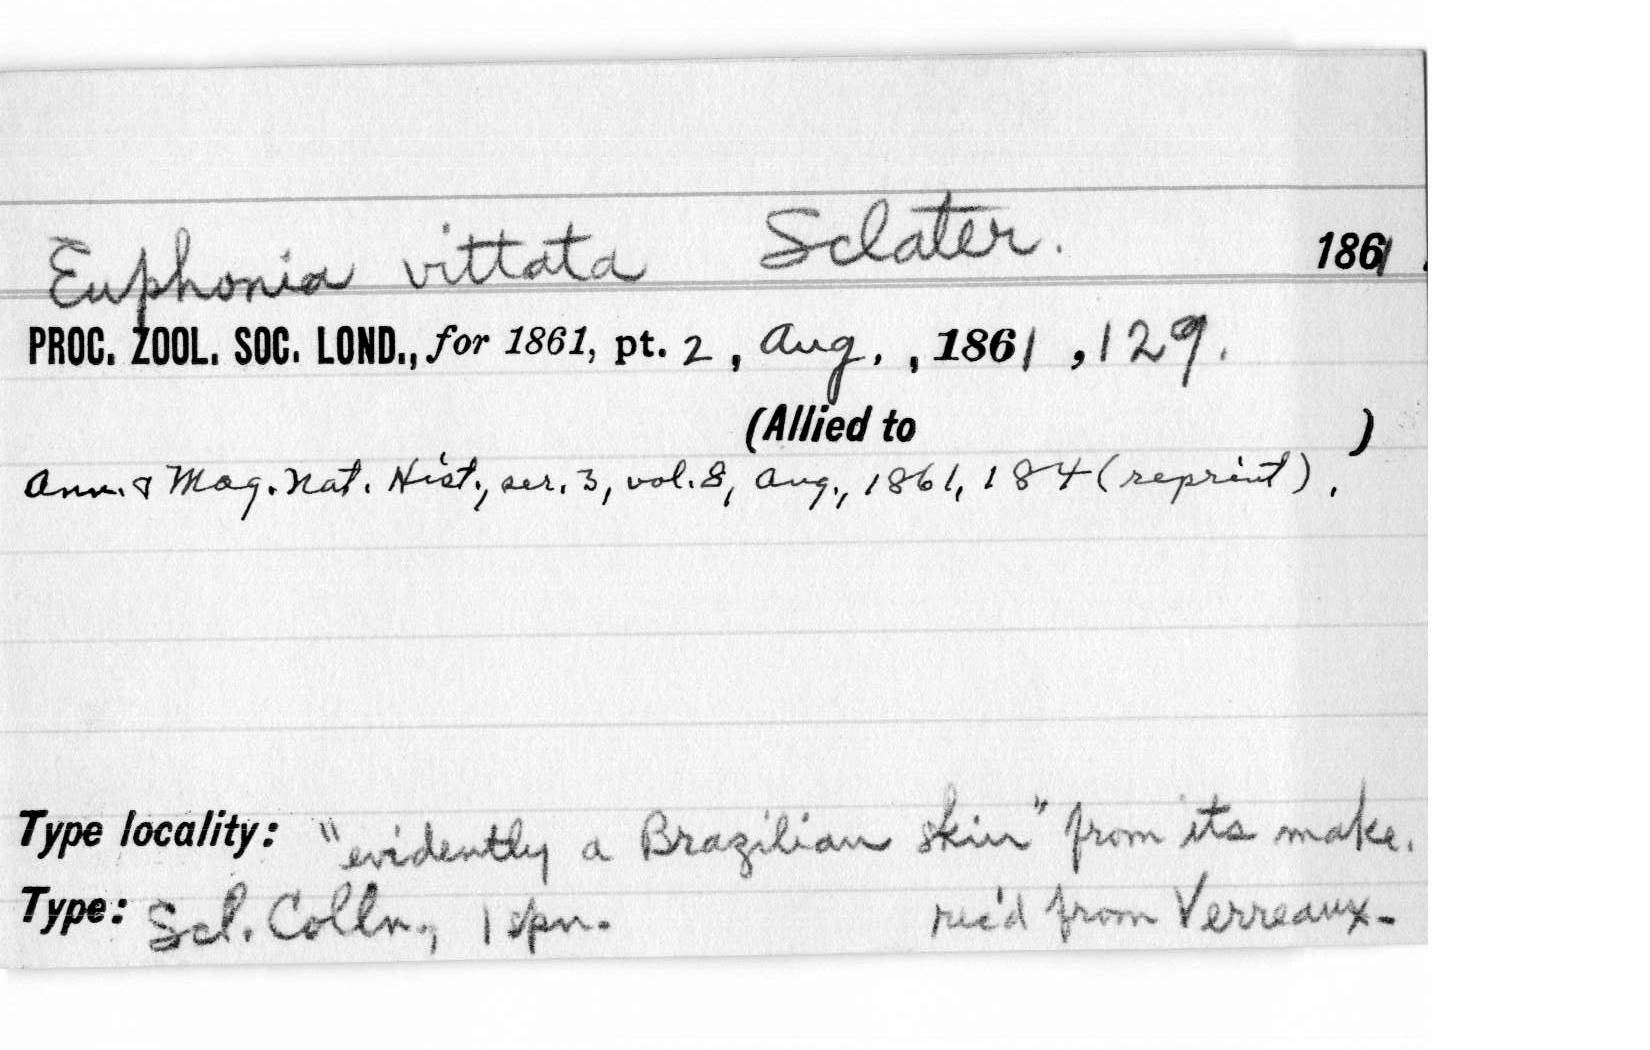 Euphonia vittata Sclater. 1861.
PROC. ZOOL. SOC. LOND., for 1861, pt. 2, Aug., 1861, 129.
(Allied to )
Ann. & Mag. Nat. Hist., ser. 3, vol. 8, Aug., 1861, 184 (reprint).
Type locality: "evidently a Brazilian skin" from its make.
Type: Scl. Colln., 1 spn. rec'd from Verreaux.